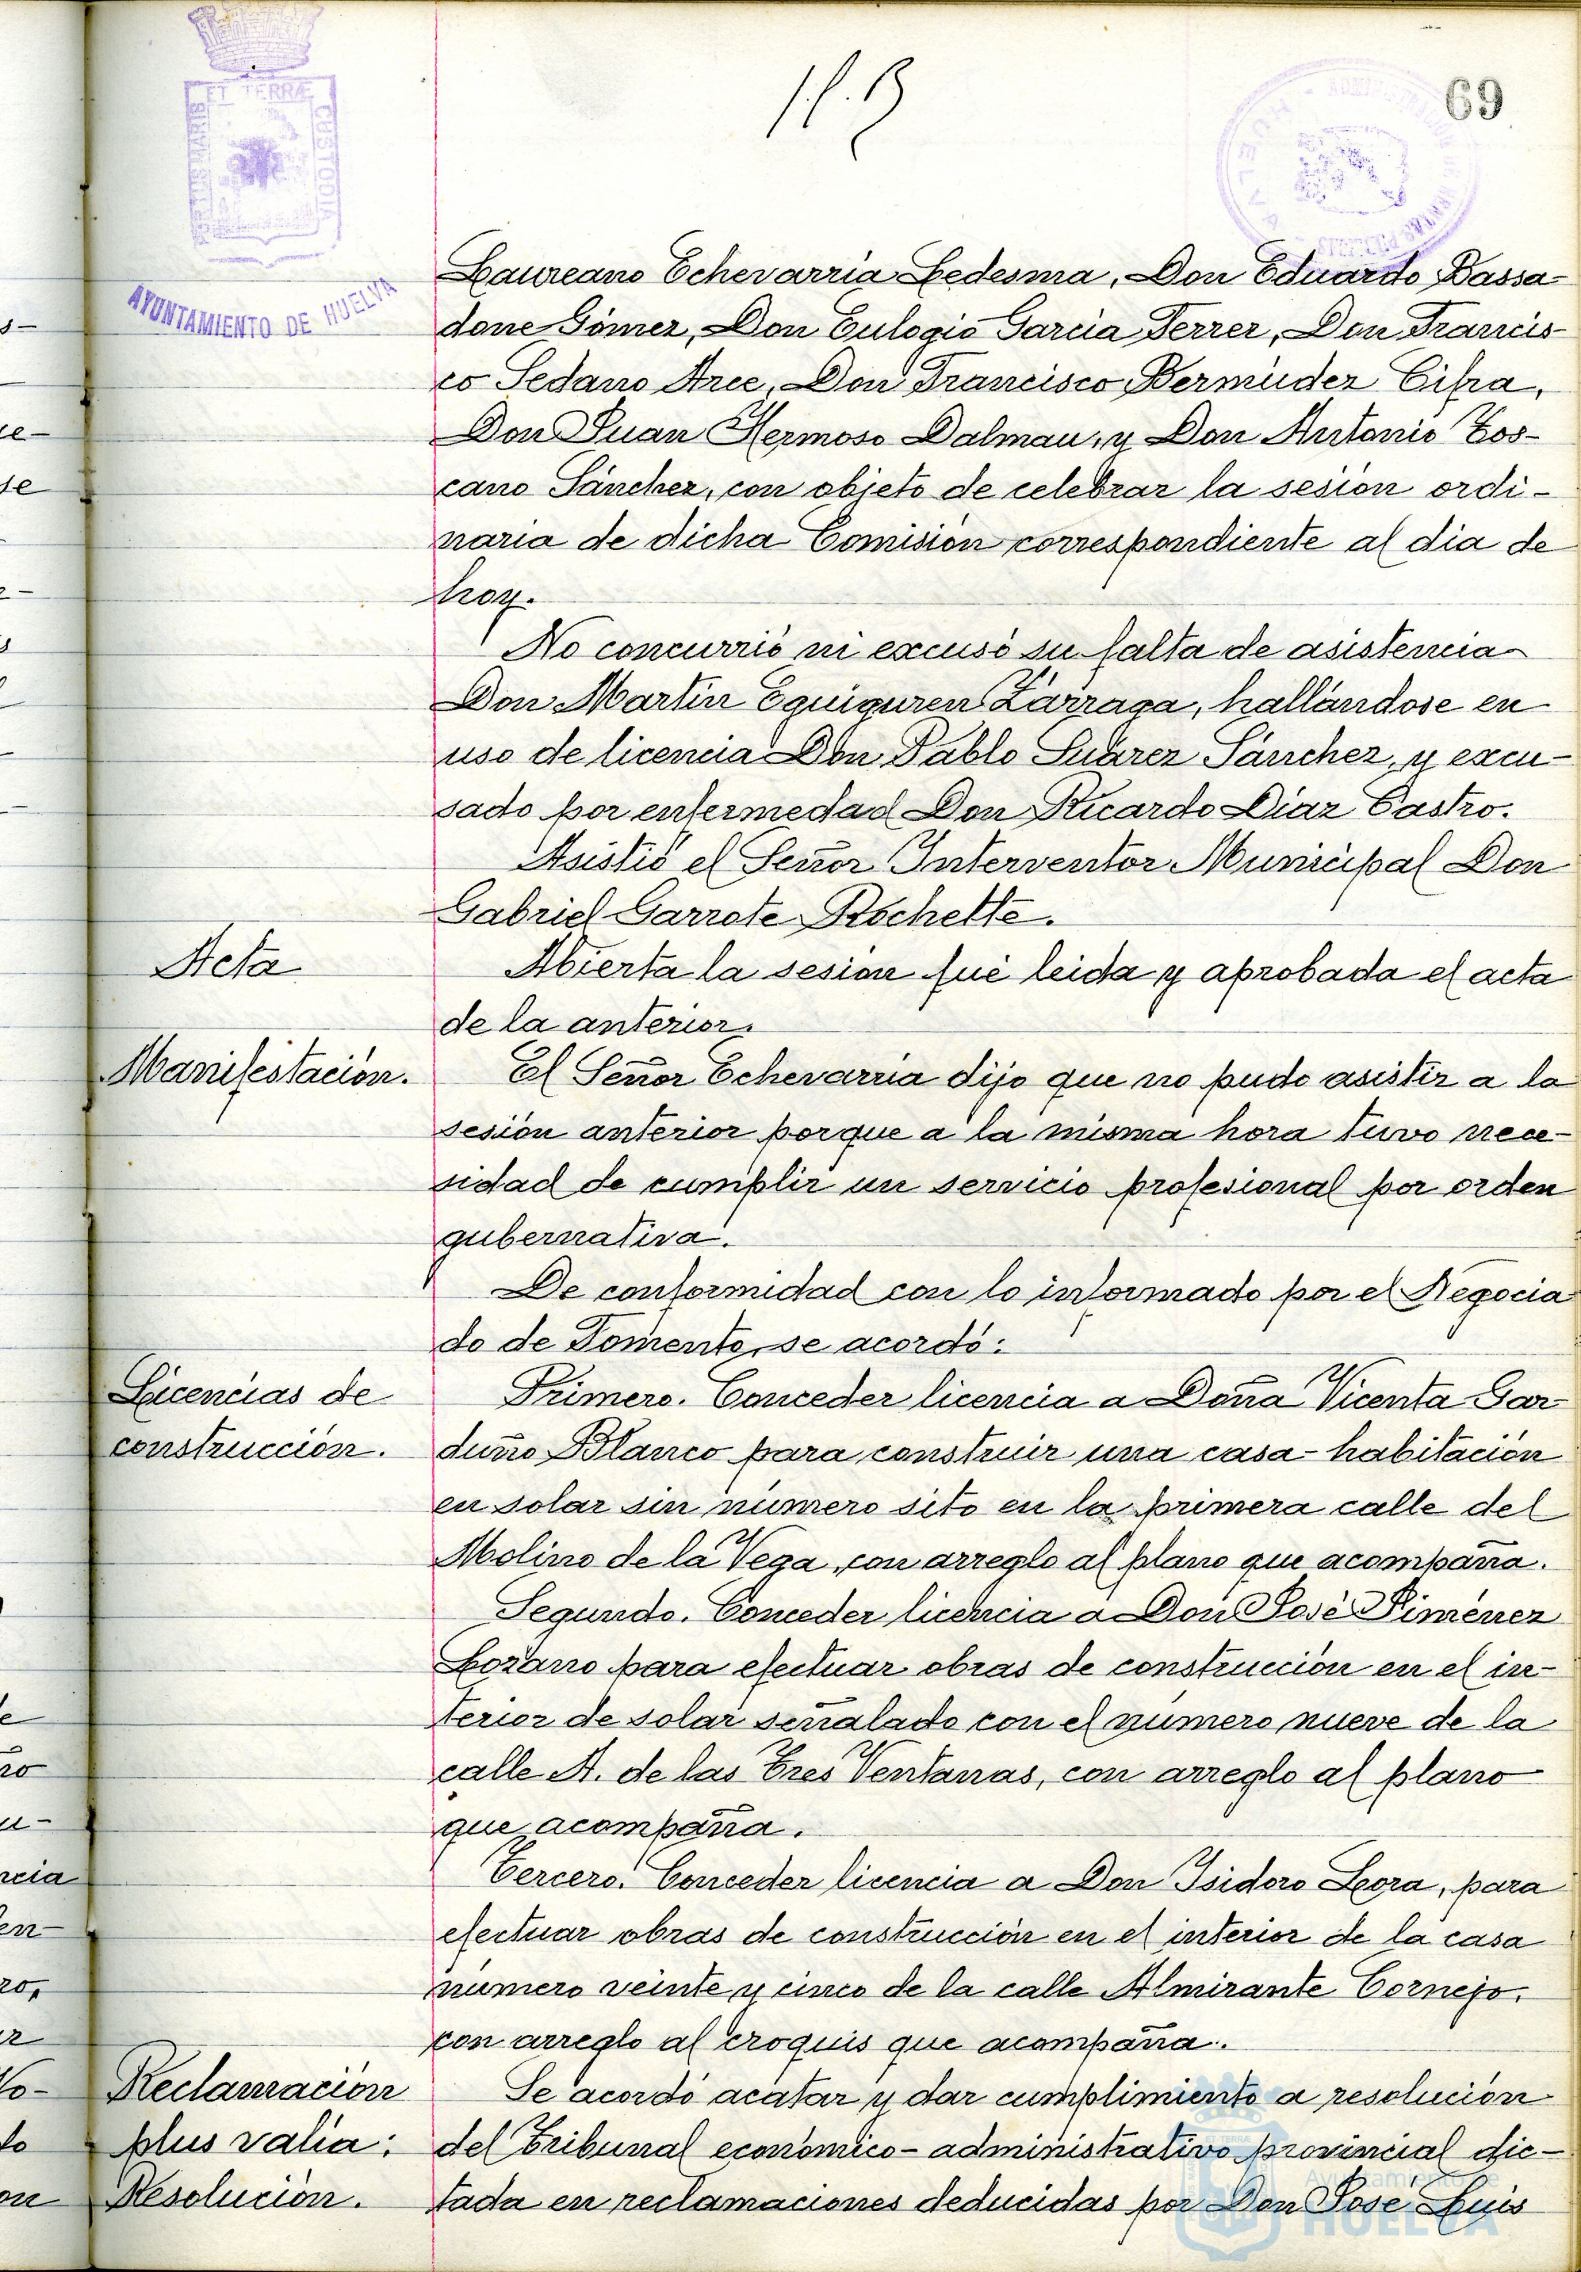 69
AYUNTAMIENTO DE HUELVA
Laureano Echevarria Ledesma, Don Eduardo Bassa-
done Gómez, Don Eulogio Garcia Ferrer, Don Francis-
co Sedano Arce, Don Francisco Bermúdez Cifra,
Don Juan Hermoso Dalmau, y Don Antonio Tos-
cano Sánchez, con objeto de celebrar la sesión ordi-
naria de dicha Comisión correspondiente al dia de
hoy.
No concurrió ni excusó su falta de asistencia
Don Martin Eguiguren Zárraga, hallándose en
uso de licencia Don Pablo Suárez Sánchez, y excu-
sado por enfermedad Don Ricardo Diaz Castro.
Asistió el Señor Interventor Municipal Don
Gabriel Garrote Rochette.
Acta
Abierta la sesión fué leida y aprobada el acta
de la anterior.
Manifestación.
El Señor Echevarria dijo que no pudo asistir a la
sesión anterior porque a la misma hora tuvo nece-
sidad de cumplir un servicio profesional por orden
gubernativa.
De conformidad con lo informado por el Negocia
do de Fomento, se acordó:
Licencias de
construcción.
Primero. Conceder licencia a Doña Vicenta Gar
duño Blanco para construir una casa-habitación
en solar sin número sito en la primera calle del
Molino de la Vega, con arreglo al plano que acompaña.
Segundo. Conceder licencia a Don José Jiménez
Lozano para efectuar obras de construcción en el in-
terior de solar señalado con el número nueve de la
calle A. de las Tres Ventanas, con arreglo al plano
que acompaña.
Tercero. Conceder licencia a Don Isidoro Lora, para
efectuar obras de construcción en el interior de la casa
número veinte y cinco de la calle Almirante Cornejo,
con arreglo al croquis que acompaña.
Reclamación
plus valia:
Resolución.
Se acordó acatar y dar cumplimiento a resolución
del Tribunal económico-administrativo provincial dic-
tada en reclamaciones deducidas por Don José Luis
Ayuntamiento de
HUELVA